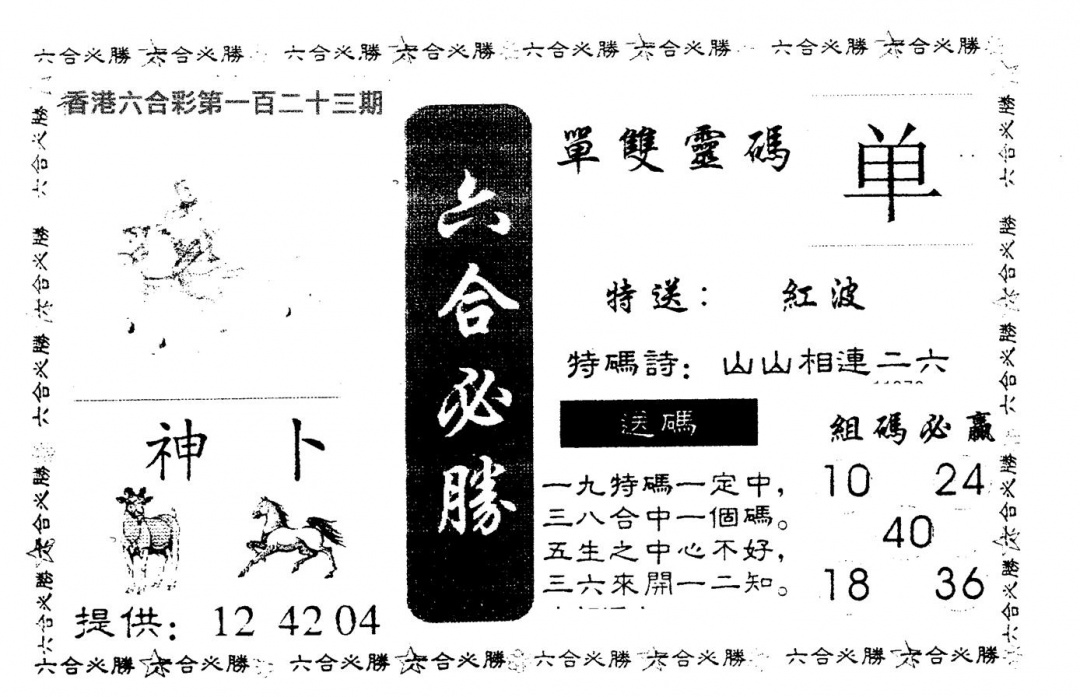 六合必勝 六合必勝 六合必勝 六合必勝 六合必勝 六合必勝 六合必勝 六合必勝
香港六合彩第一百二十三期
神 卜
提供： 12 42 04
六合必勝
單雙靈碼
单
特送： 紅波
特碼詩：山山相連二六
送碼
一九特碼一定中，
三八合中一個碼。
五生之中心不好，
三六來開一二知。
組碼必贏
10 24
40
18 36
六合必勝 六合必勝 六合必勝 六合必勝 六合必勝
六合必勝 六合必勝 六合必勝 六合必勝 六合必勝
六合必勝 六合必勝 六合必勝 六合必勝 六合必勝 六合必勝 六合必勝 六合必勝